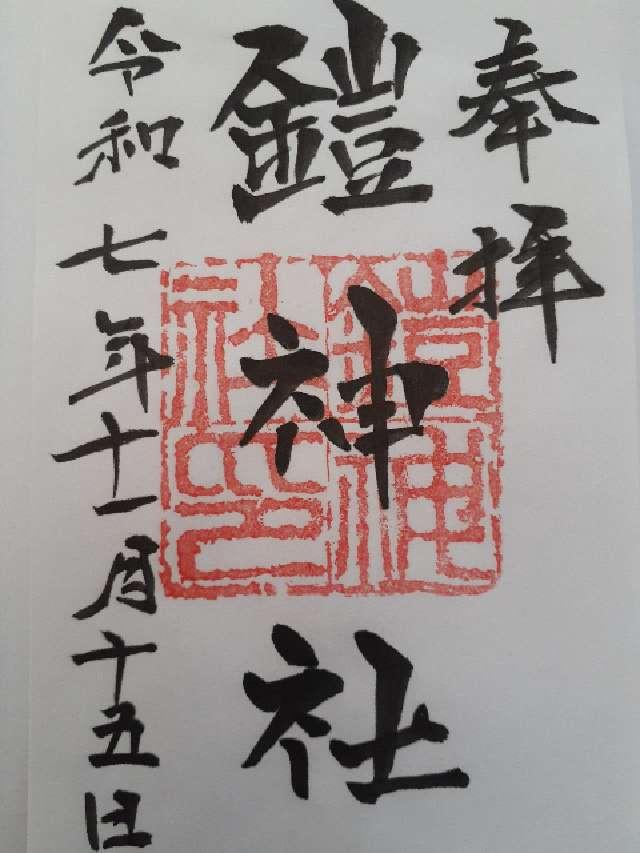 奉拝
鎧神社
鎧神社印
令和七年十一月十五日